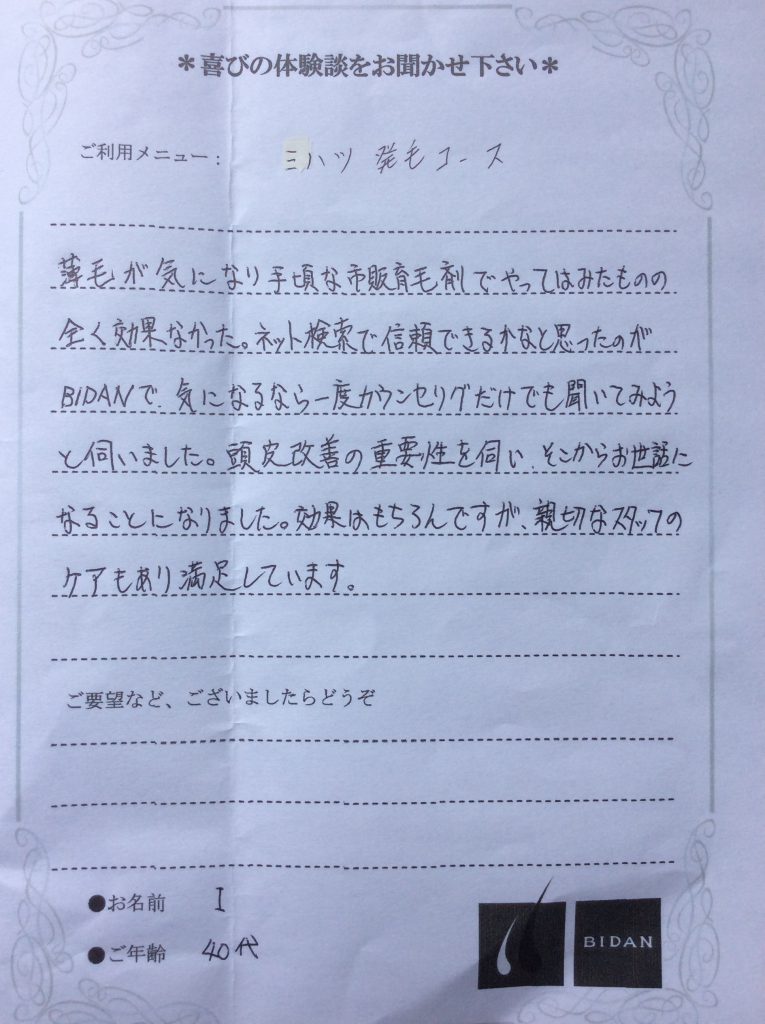 ＊喜びの体験談をお聞かせ下さい＊
ご利用メニュー： ミハツ 発毛コース
薄毛が気になり手頃な市販育毛剤でやってはみたものの
全く効果なかった。ネット検索で信頼できるかなと思ったのが
BIDANで、気になるなら一度カウンセリグだけでも聞いてみよう
と伺いました。頭皮改善の重要性を伺い、そこからお世話に
なることになりました。効果はもちろんですが、親切なスタッフの
ケアもあり満足しています。
ご要望など、ございましたらどうぞ
●お名前 I
●ご年齢 40代
BIDAN